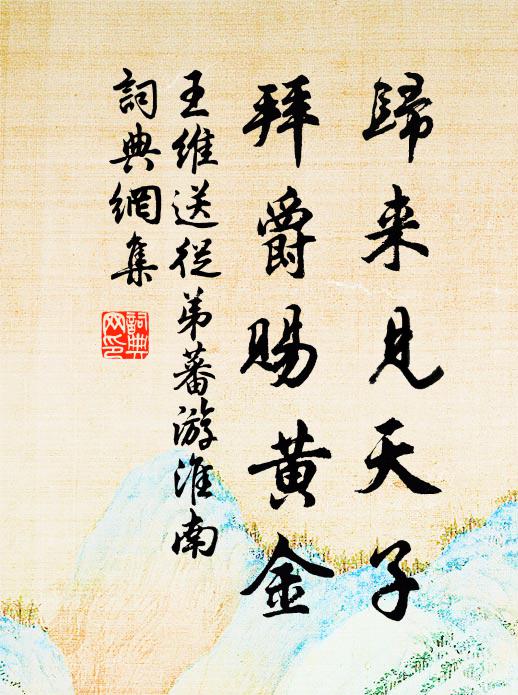 歸来見天子
拜爵賜黃金
王維送從弟蕃游淮南
詞典網集
詞典網印